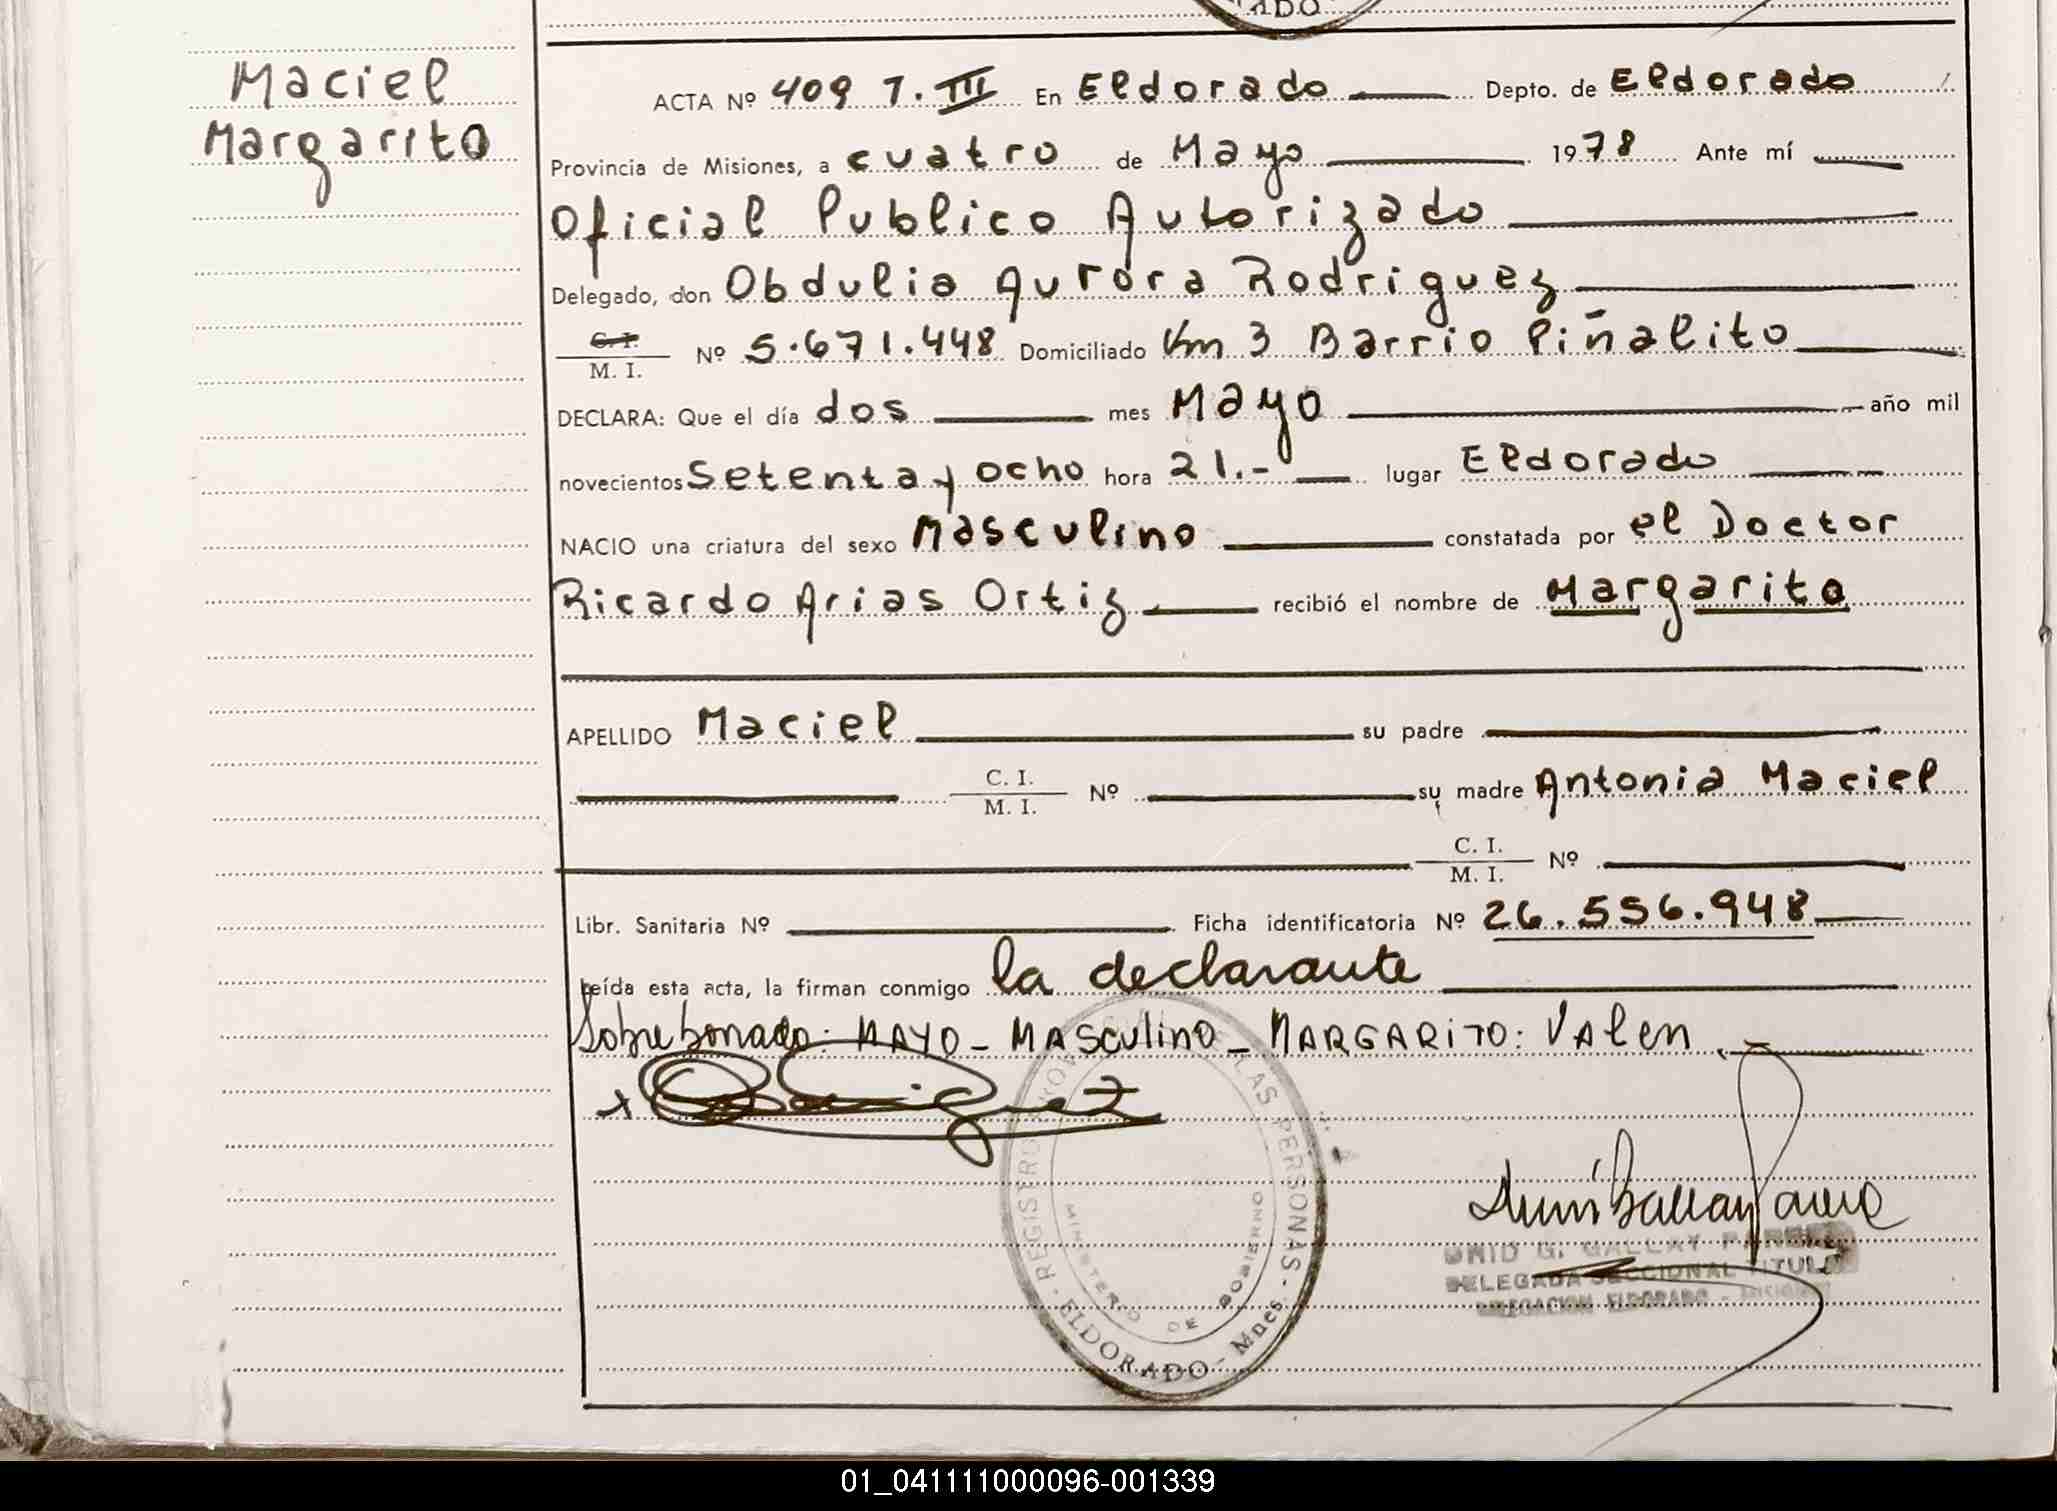 ADO
Maciel
Margarito
ACTA Nº 409 T. III En Eldorado Depto. de Eldorado
Provincia de Misiones, a cuatro de Mayo 1978 Ante mí
Oficial Publico Autorizado
Delegado, don Obdulia Aurora Rodriguez
C. I. / M. I. Nº 5.671.448 Domiciliado Km 3 Barrio Piñalito
DECLARA: Que el día dos mes Mayo año mil
novecientos Setenta y ocho hora 21.- lugar Eldorado
NACIO una criatura del sexo Masculino constatada por el Doctor
Ricardo Arias Ortiz recibió el nombre de Margarito
APELLIDO Maciel su padre
C. I. / M. I. Nº su madre Antonia Maciel
C. I. / M. I. Nº
Libr. Sanitaria Nº Ficha identificatoria Nº 26.556.948
Leída esta acta, la firman conmigo la declarante
Sobreborrado: MAYO - MASCULINO - MARGARITO: VALEN
REGISTRO LAS PERSONAS
MINISTERIO DE GOBIERNO
ELDORADO - Mnes.
G. GALLAY
DELEGADA SECCIONAL TITULAR
DELEGACION ELDORADO
01_041111000096-001339